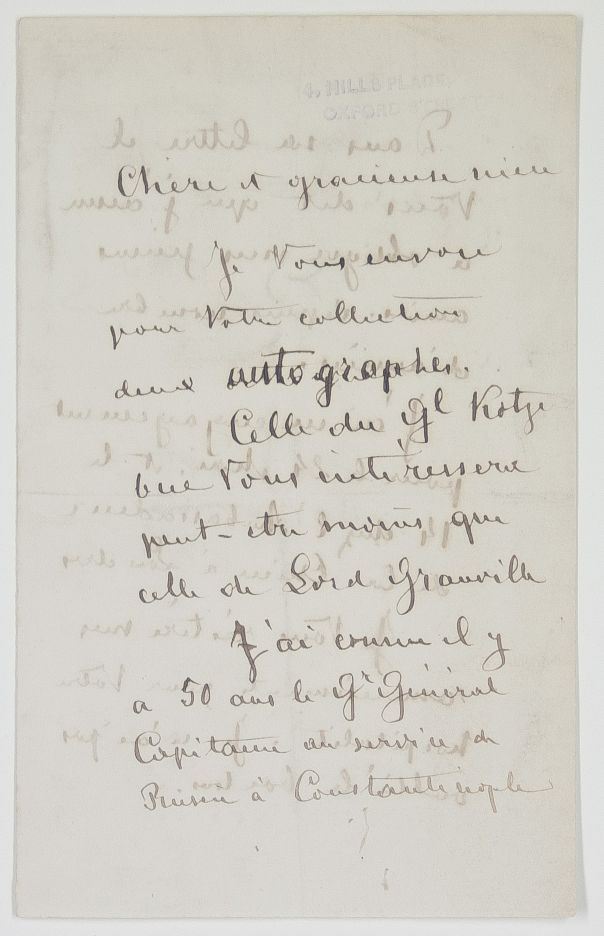 4, HILLS PLACE,
OXFORD STREET
Chère et gracieuse nièce
Je Vous envoie
pour Votre collection
deux autographes.
Celle du Gl Kotze
bue Vous intéressera
peut-etre moins que
celle de Lord Granville
J'ai connu il y
a 50 ans le Gr Général
Capitaine au service de
Prusse à Constantinople